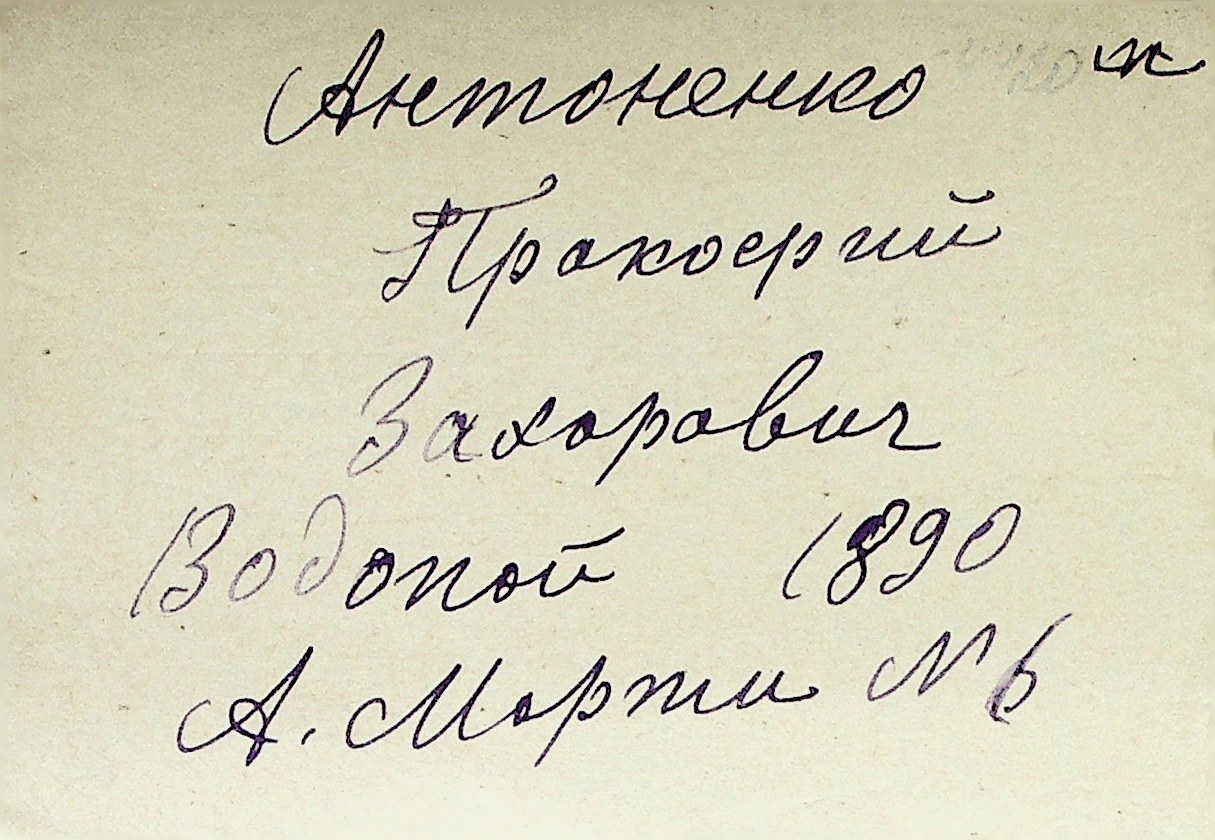 Антоненко ж
Прокофий
Захорович
Водопой 1890
А. Марти №6